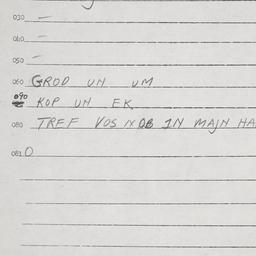 030 —
040 —
050 —
060 GROD UN UM
070 KOP UN EK
080 TREF VOS IN 1N MAJN HA
081 0